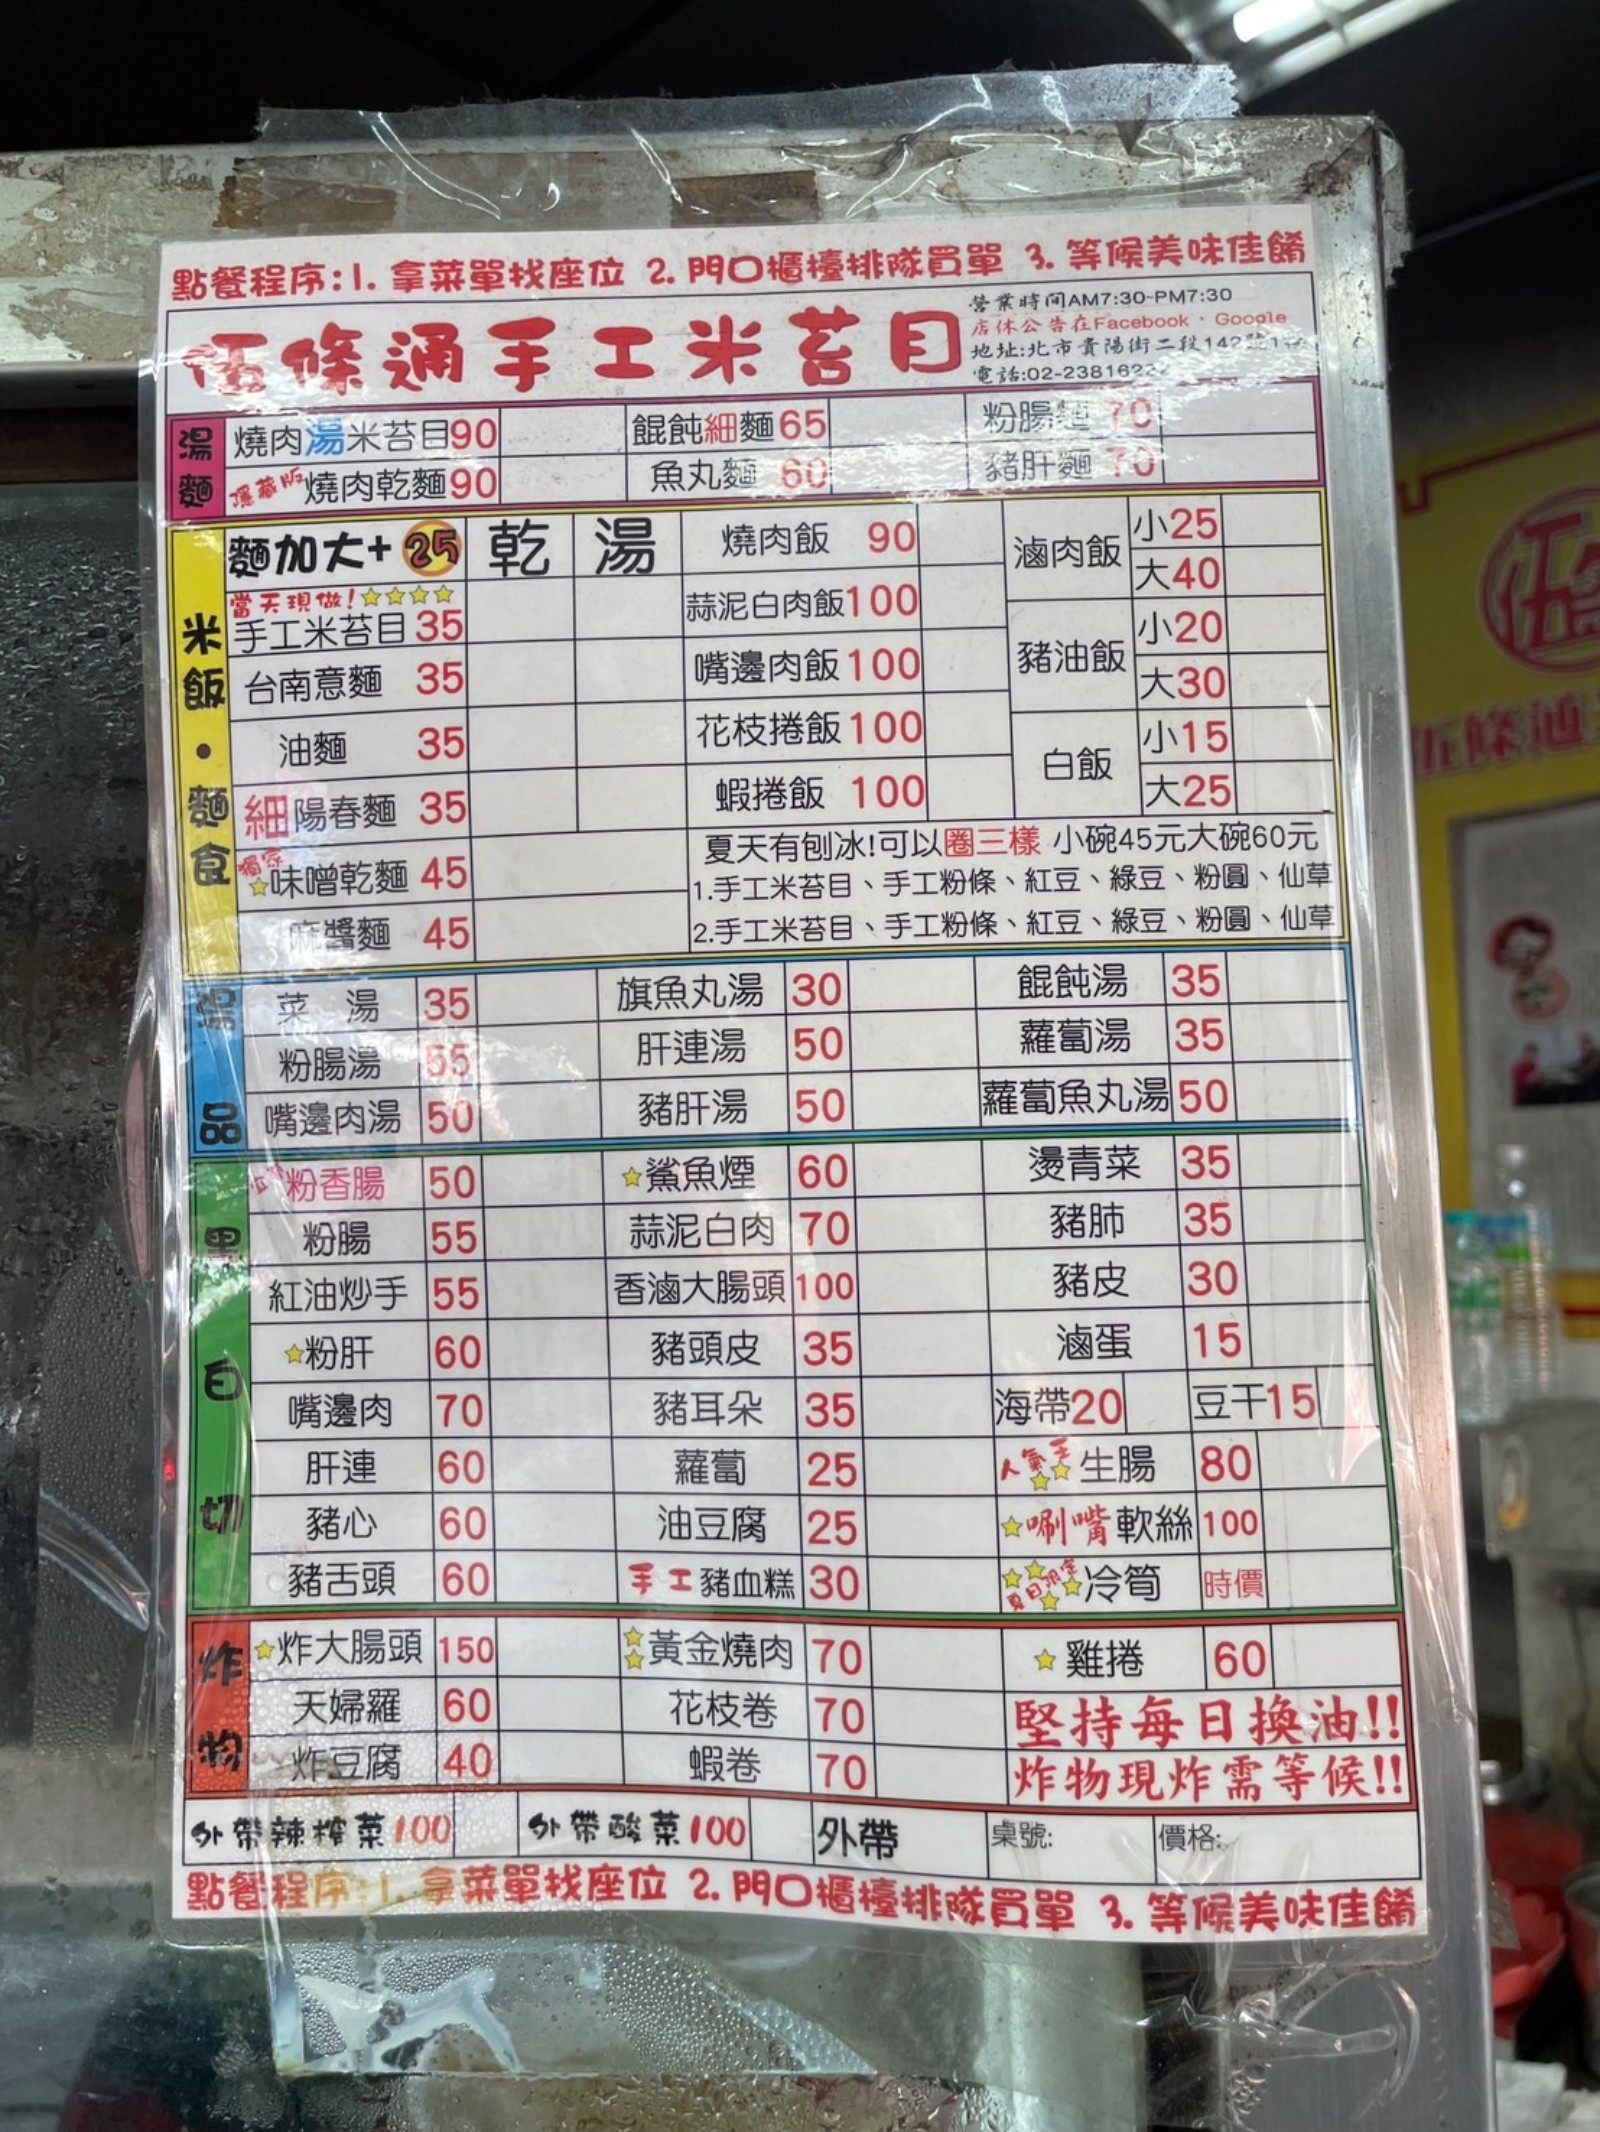 點餐程序:1. 拿菜單找座位 2. 門口櫃檯排隊買單 3. 等候美味佳餚
伍條通手工米苔目
營業時間AM7:30-PM7:30
店休公告在Facebook、Google
地址:北市貴陽街二段142號1
電話:02-2381622
湯麵
燒肉湯米苔目90 餛飩細麵65 粉腸麵 70
隱藏版 燒肉乾麵90 魚丸麵 60 豬肝麵 70
米飯・麵食
麵加大+25 乾 湯 燒肉飯 90 滷肉飯 小25
大40
當天現做!
手工米苔目35 蒜泥白肉飯100 豬油飯 小20
台南意麵 35 嘴邊肉飯100 大30
油麵 35 花枝捲飯100 白飯 小15
細陽春麵 35 蝦捲飯 100 大25
獨家 味噌乾麵 45
麻醬麵 45
夏天有刨冰!可以圈三樣 小碗45元大碗60元
1.手工米苔目、手工粉條、紅豆、綠豆、粉圓、仙草
2.手工米苔目、手工粉條、紅豆、綠豆、粉圓、仙草
湯品
菜 湯 35 旗魚丸湯 30 餛飩湯 35
粉腸湯 55 肝連湯 50 蘿蔔湯 35
嘴邊肉湯 50 豬肝湯 50 蘿蔔魚丸湯 50
黑白切
粉香腸 50 鯊魚煙 60 燙青菜 35
粉腸 55 蒜泥白肉 70 豬肺 35
紅油炒手 55 香滷大腸頭 100 豬皮 30
粉肝 60 豬頭皮 35 滷蛋 15
嘴邊肉 70 豬耳朵 35 海帶20 豆干15
肝連 60 蘿蔔 25 人氣王 生腸 80
豬心 60 油豆腐 25 唰嘴軟絲 100
豬舌頭 60 手工豬血糕 30 夏日限定 冷筍 時價
炸物
炸大腸頭 150 黃金燒肉 70 雞捲 60
天婦羅 60 花枝卷 70 堅持每日換油!!
炸豆腐 40 蝦卷 70 炸物現炸需等候!!
外帶辣榨菜100 外帶酸菜100 外帶 桌號: 價格:
點餐程序:1. 拿菜單找座位 2. 門口櫃檯排隊買單 3. 等候美味佳餚
伍條通